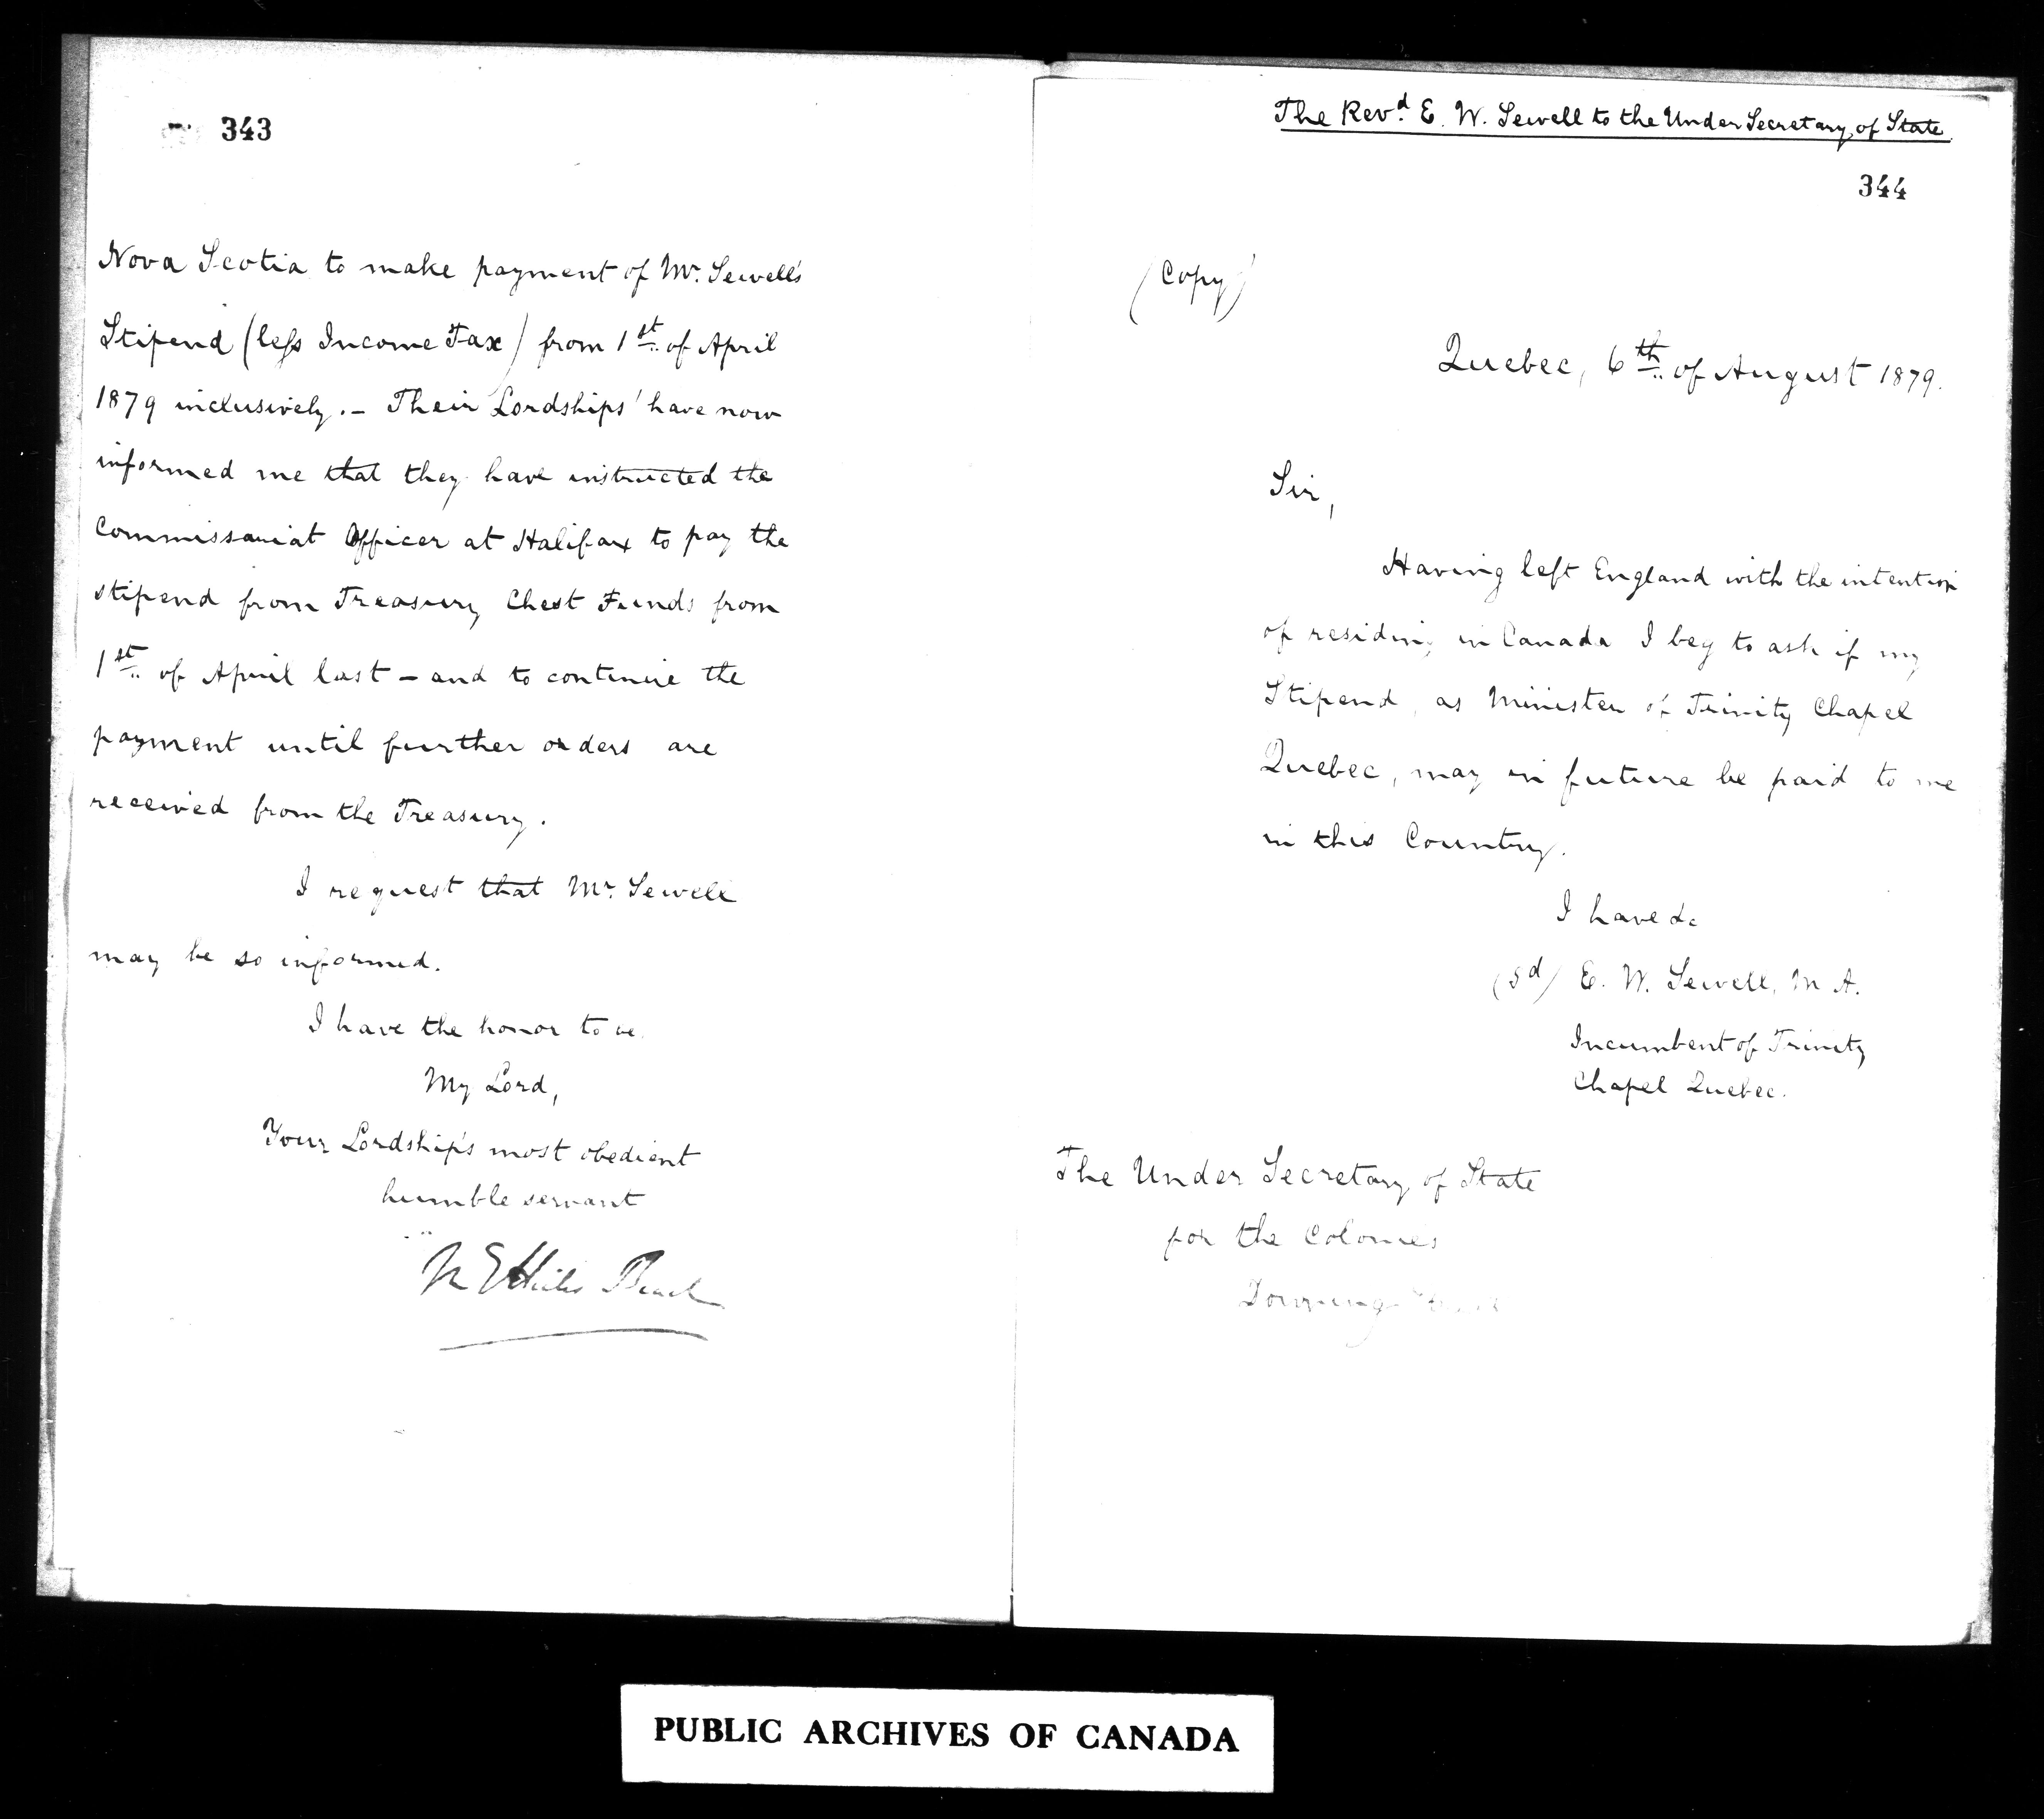 343
Nova Scotia to make payment of Mr. Sewell's
Stipend (less Income Tax) from 1st of April
1879 inclusively. – Their Lordships' have now
informed me that they have instructed the
Commissariat Officer at Halifax to pay the
stipend from Treasury Chest Funds from
1st of April last – and to continue the
payment until further orders are
received from the Treasury.
I request that Mr. Sewell
may be so informed.
I have the honor to be
My Lord,
Your Lordship's most obedient
humble servant
M E Hicks Beach
The Revd. E. W. Sewell to the Under Secretary of State
344
(Copy)
Quebec, 6th of August 1879.
Sir,
Having left England with the intention
of residing in Canada I beg to ask if my
Stipend, as Minister of Trinity Chapel
Quebec, may in future be paid to me
in this Country.
I have &c
(sd) E. W. Sewell, M A.
Incumbent of Trinity
Chapel Quebec.
The Under Secretary of State
for the Colonies
Downing Street
PUBLIC ARCHIVES OF CANADA